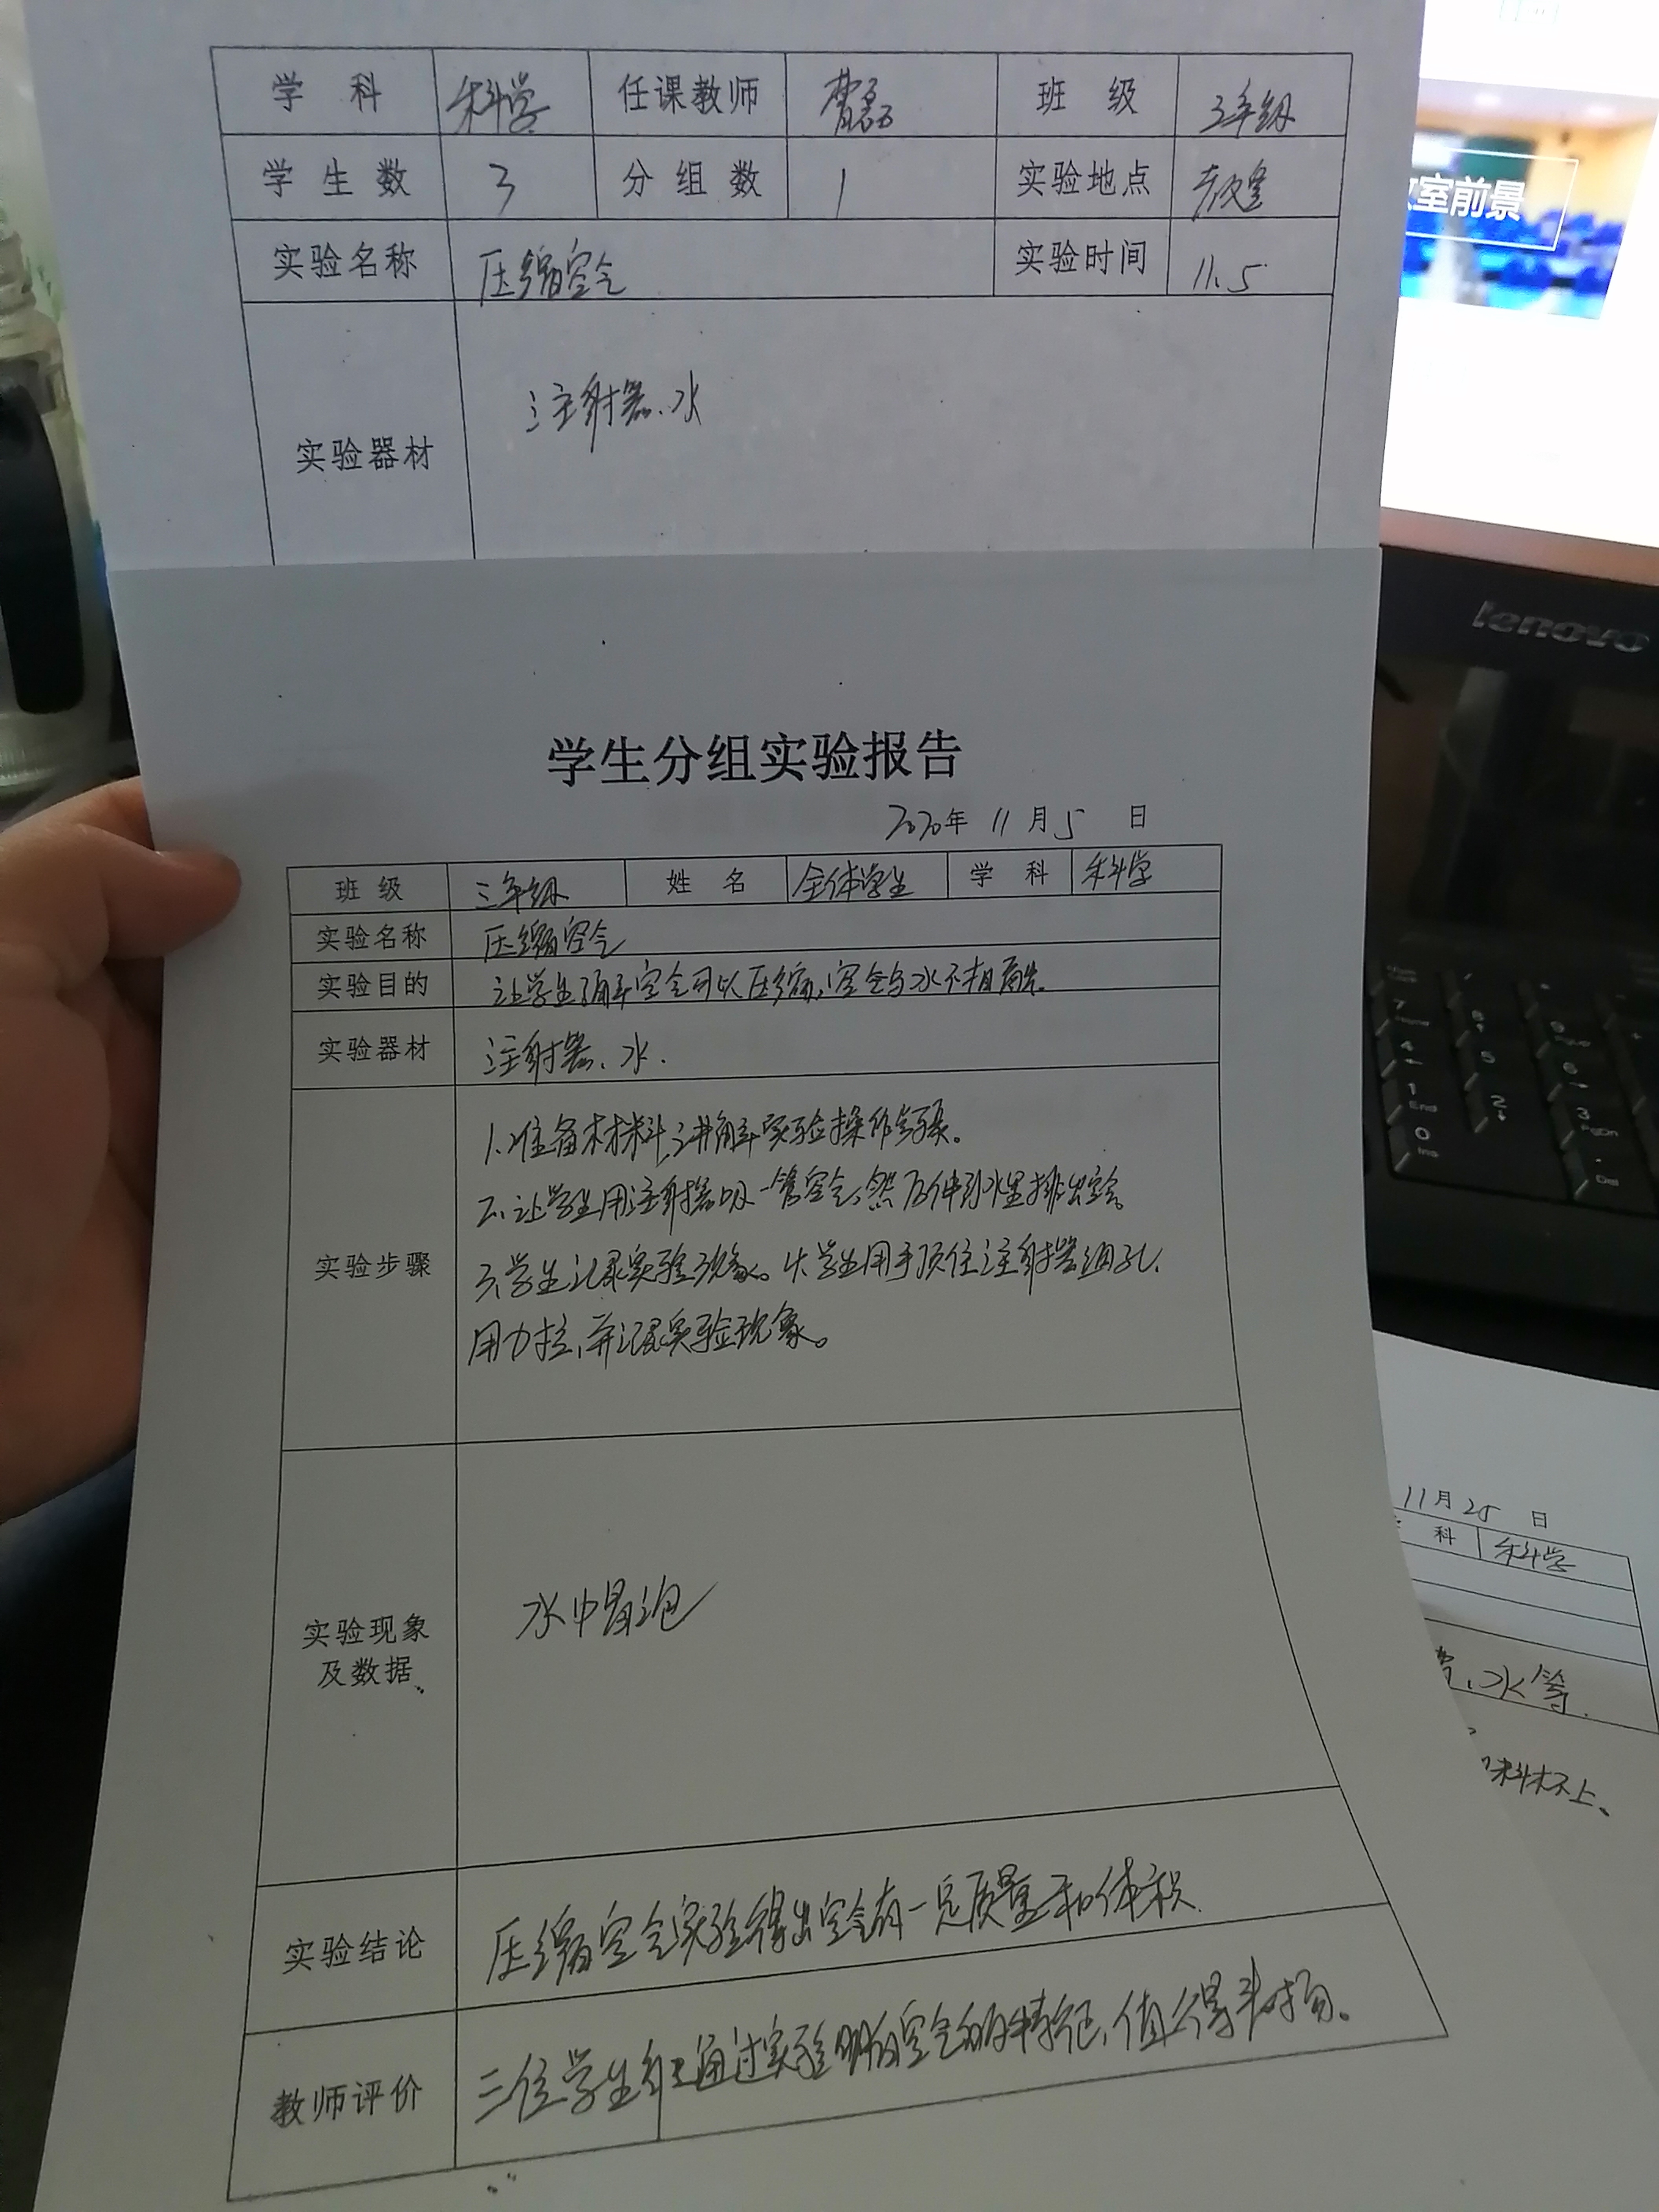 学 科 科学 任课教师 班 级 3年级
学 生 数 3 分 组 数 1 实验地点 教室
实验名称 压缩空气 实验时间 11.5
实验器材 注射器、水
室前景
lenovo
学生分组实验报告
2020年 11 月 5 日
班 级 三年级 姓 名 全体学生 学 科 科学
实验名称 压缩空气
实验目的 让学生了解空气可以压缩,空气与水不相融。
实验器材 注射器、水.
实验步骤
1.准备材料,讲解实验操作步骤。
2、让学生用注射器吸一管空气,然后伸到水里排出空气。
3、学生记录实验现象。4.学生用手顶住注射器通孔,
用力拉,并记录实验现象。
实验现象
及数据
水中冒泡
实验结论 压缩空气实验得出空气有一定质量和体积.
教师评价 三位学生能通过实验明白空气的特征,值得表扬。
11月25 日
科 科学
、水等.
料杯上、